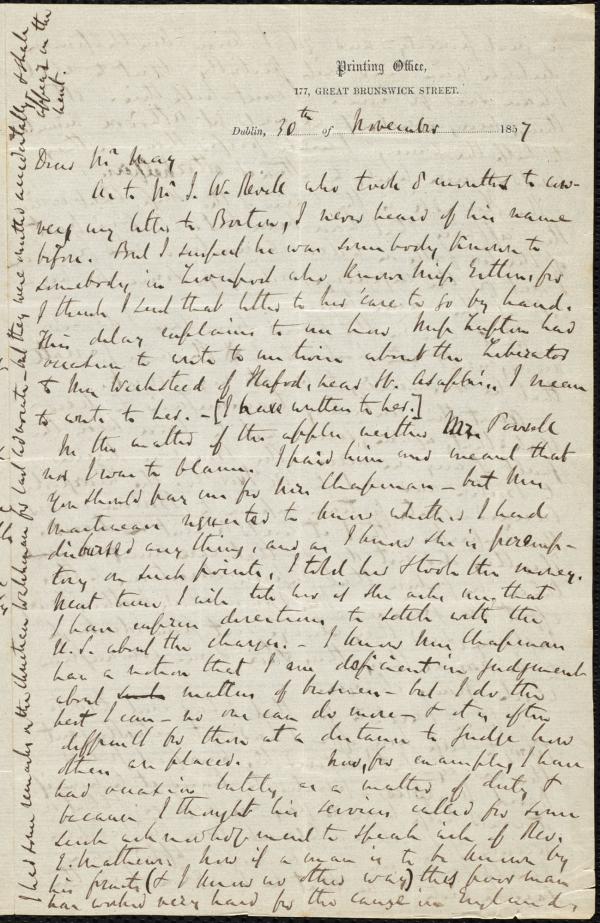 Printing Office,
177, GREAT BRUNSWICK STREET.
Dublin, 30th of November 1857
Dear Mr May
As to Mr J. W. who took 8 months to con-
vey my letter to Boston, I never heard of his name
before. But I suspect he was somebody known to
somebody in Liverpool who knows Miss Estlin, for
I think I sent that letter to her care to go by hand.
This delay explains to me how Miss Lupton had
occasion to write to me twice about the Liberator
to Mrs Wicksteed of Hafod, near St. Asaph's. I mean
to write to her. - [I have written to her.]
In the matter of the apples neither Mr. Powell
nor I was to blame. I paid him and meant that
you should pay me for Mrs Chapman - but Mrs
Martineau requested to know whether I had
disbursed anything, and as I know she is peremp-
tory on such points, I told her & took the money.
Next time I will tell her if she asks me, that
I have express directions to settle with the
U.S. about the charges. - I know Mrs Chapman
has a notion that I am deficient in judgment
about such matters of business - but I do the
best I can - no one can do more - & it is often
difficult for those at a distance to judge how
others are placed. Now, for example, I have
had occasion lately, as a matter of duty, &
because I thought his services called for some
such acknowledgment to speak well of Rev.
E. Mathews. Now if a man is to be known by
his fruits (& I know no other way) this poor man
has worked very hard for the cause in England,
I had some remarks on the American for last Advocate - but they were omitted accidentally, & shall
appear in the
next.